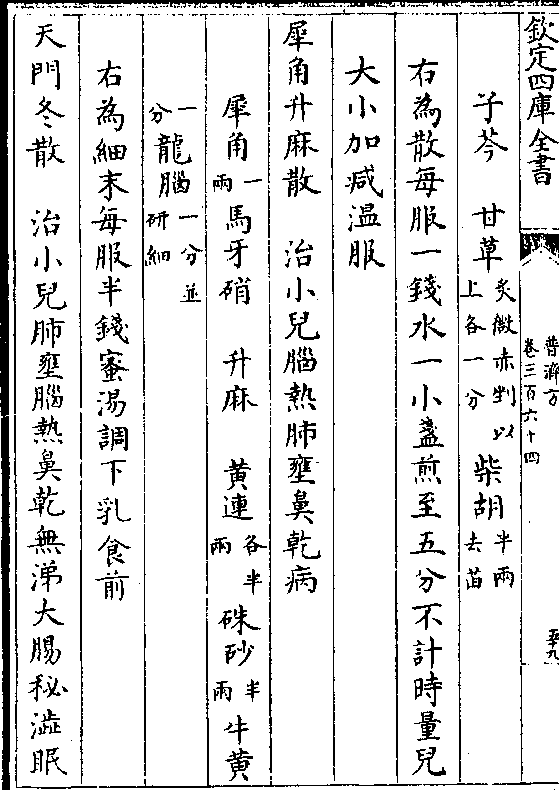 欽定四庫全書
普濟方
卷三百六十四
五十九
子芩 甘草炙微赤剉以上各一分 柴胡半兩去苗
右為散每服一錢水一小盞煎至五分不計時量兒
大小加减温服
犀角升麻散 治小兒腦熱肺壅鼻乾病
犀角一兩 馬牙硝 升麻 黄連各半兩 硃砂半兩 牛黄
一分 龍腦一分並研細
右為細末每服半錢蜜湯調下乳食前
天門冬散 治小兒肺壅腦熱鼻乾無涕大腸秘澁眠